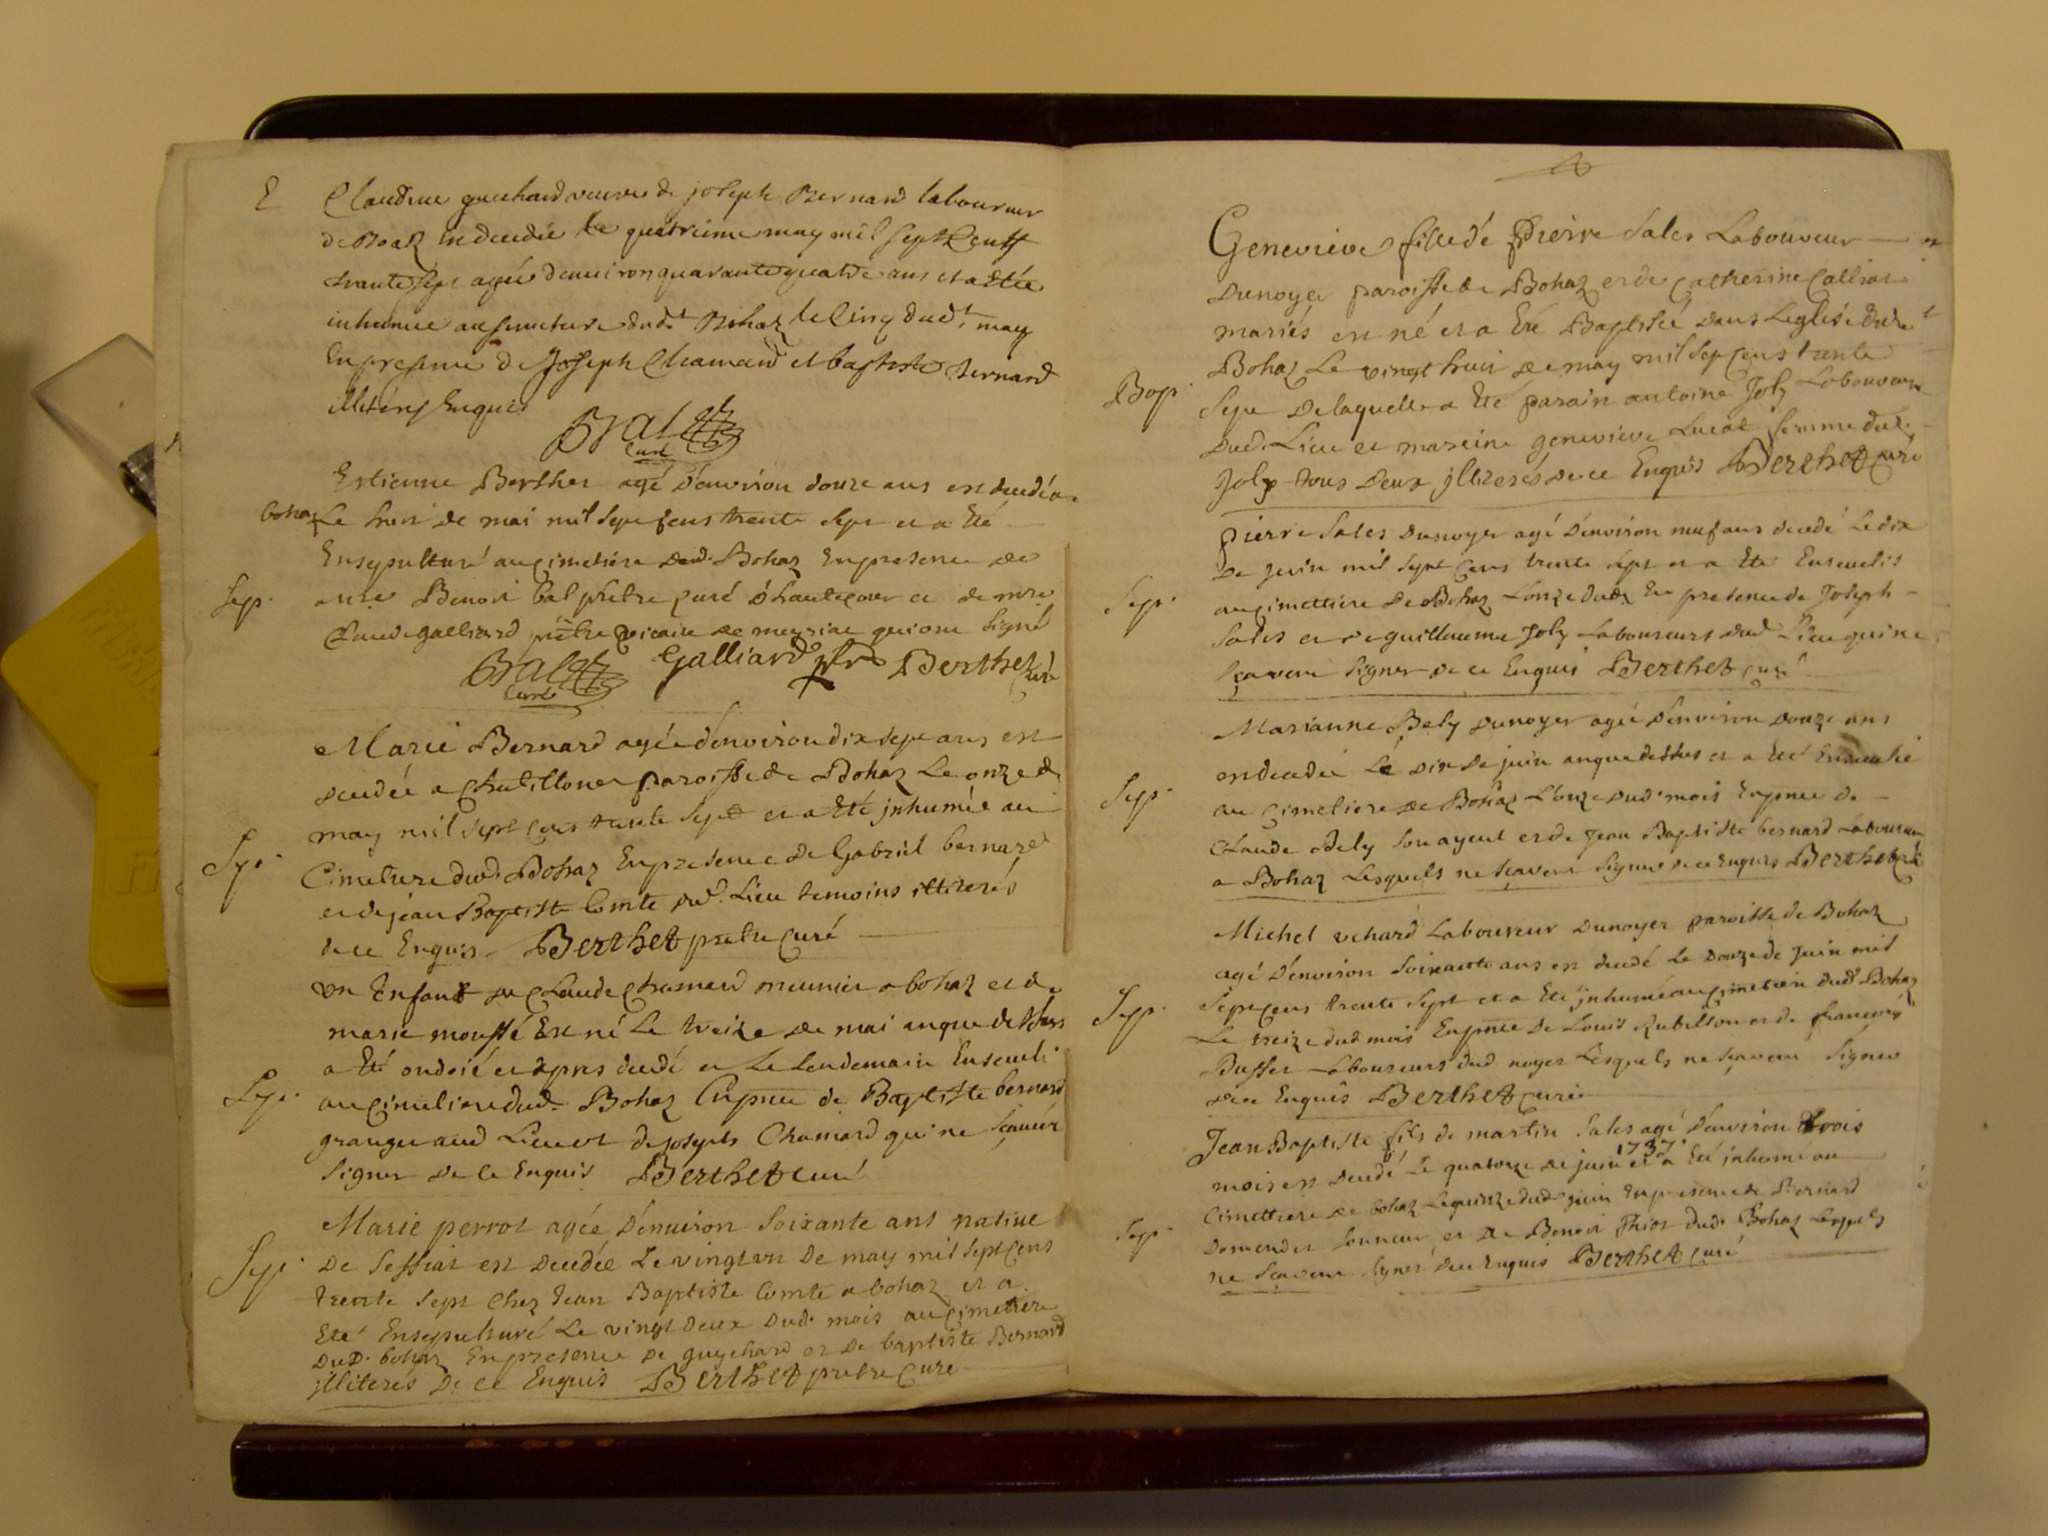 E
Claudine guichard veuve de joseph Bernard laboureur
de Boaz est decedée le quatrieme may mil sept Cent
trante sept agée denviron quarante quatre ans et a Etée
inhumée au dud.t Bohaz le Cinq dud.t may
En presence de Joseph Chamard et baptiste Bernard
Enquis
Bal
Curé
Estienne Berthet agé d'environ douze ans est decedé a
bohaz Le huit de mai mil sept cens trente sept et a Eté
Ensepulturé au cimetiére dud. Bohaz En presence de
Sep.
mre Benoit bal prêtre curé d'hautecour et de mre
Claude galliard prêtre vicaire de meyriat qui ont signé
Bal Galliard ptre Berthet curé
Curé
Marie Bernard agée d'environ dix sept ans est
decedée a Chatillonet paroisse de Bohaz Le onze de
may mil sept cens trente sept et a Eté jnhumée au
Sep.
Cimetiere dud. Bohaz En presence de Gabriel bernard
et de jean Baptiste Comte dud. Lieu temoins illiterés
de ce Enquis Berthet pretre curé
un Enfant de Claude Chamard meunier a bohaz et de
marie moussé Est né Le treize de mai anque dessus
a Eté ondoié et apres decedé et Le Lendemain Enseveli
Sep.
au cimetiere dud. Bohaz En pnce de Baptiste bernard
granger aud Lieu et de joseph Chamard qui ne sçavent
signer de ce Enquis Berthet curé
Marie perrot agée D'environ soixante ans native
Sep.
De Seffiat est Decedée Le vingt un De may mil sept cens
trente sept chez Jean Baptiste Comte a bohaz et a
Eté Ensepulturé Le vingt Deux Dud. mois au cimetiere
DuD. bohaz En presence de guychard et De baptiste Bernard
jlliterés De ce Enquis Berthet pretre Curé
Genevieve fille de Pierre Sales Laboureur
Dunoyer paroisse de Bohaz et de Catherine Calliat
mariés est né et a Eté Baptisée Dans L'eglise dud.t
Bohaz Le vingt huit de may mil sept cens trente
Bap.
sept De laquelle a Eté parain antoine Joly Laboureur
Dud. Lieu et mareine genevieve Lucat femme dud.
Joly tous Deux jlliterés de ce Enquis Berthet curé
pierre Sales Dunoyer agé D'environ neuf ans decedé Le dix
De juin mil sept cens trente sept et a Eté Enseveli
Sep.
au cimettiere De Bohaz L'onze dud. En presence de Joseph
Sales et de guillaume Joly Laboureurs dud Lieu qui ne
sçavent signer De ce Enquis Berthet curé
Marianne Bely Dunoyer agée D'environ Douze ans
est decedée Le Dix De juin anque dessus et a Eté Enseveli
Sep.
au cimetiere de Bohaz L'onze dud. mois En pnce de
Claude Bely son ayeul et de Jean Baptiste bernard Laboureur
a Bohaz Lesquels ne sçavent signer de ce enquis Berthet curé
Michel uchard Laboureur Dunoyer paroisse de Bohaz
agé D'environ soixante ans est decedé Le Douze de Juin mil
Sep.
sept cens trente sept et a Eté jnhumé au cimetiere dud. Bohaz
Le treize dud mois En pnce De Louis Rubillon et de francois
Buffet Laboureurs dud noyer Lesquels ne sçavent signer
de ce Enquis Berthet curé
Jean Baptiste fils de martin Sales agé D'environ trois
1737.
mois est decedé Le quatorze de juin et a Eté jnhumé au
Cimettiere de bohaz Le quinze dud. juin En presence de Bernard
Sep.
sonneur et De Benoit dud. Bohaz Lesquels
ne sçavent signer De ce Enquis Berthet Curé